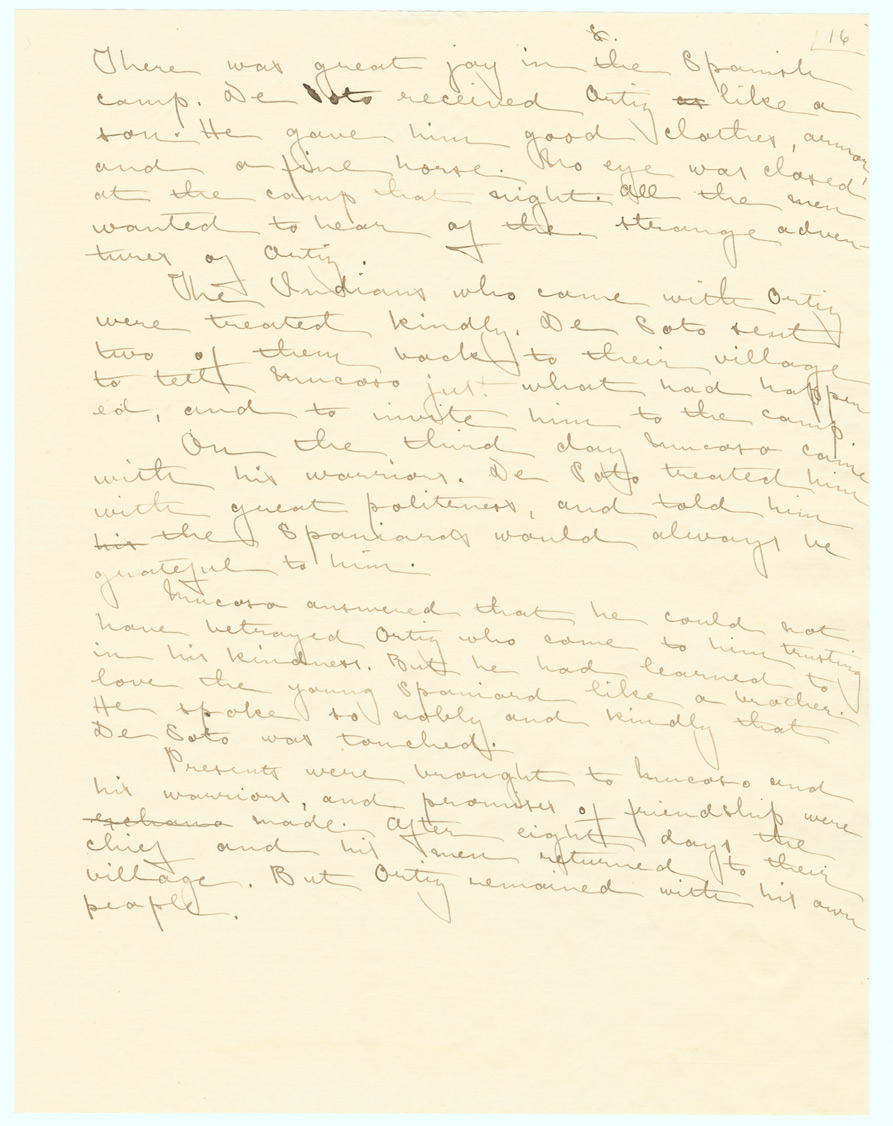 8.
16
There was great joy in the Spanish
camp. De Soto received Ortiz as like a
son. He gave him good clothes, armor,
and a fine horse. No eye was closed
at the camp that night. All the men
wanted to hear of the strange adven-
tures of Ortiz.
The Indians who came with Ortiz
were treated kindly. De Soto sent
two of them back to their village
to tell Mucoso just what had happen
ed, and to invite him to the camp.
On the third day Mucoso came
with his warriors. De Soto treated him
with great politeness, and told him
his the Spaniards would always be
grateful to him.
Mucoso answered that he could not
have betrayed Ortiz who come to him trusting
in his kindness. But he had learned to
love the young Spaniard like a brother.
He spoke so nobly and kindly that
De Soto was touched.
Presents were brought to Mucoso and
his warriors, and promises of friendship were
exchana made. After eight days the
chief and his men returned to their
village. But Ortiz remained with his own
people.